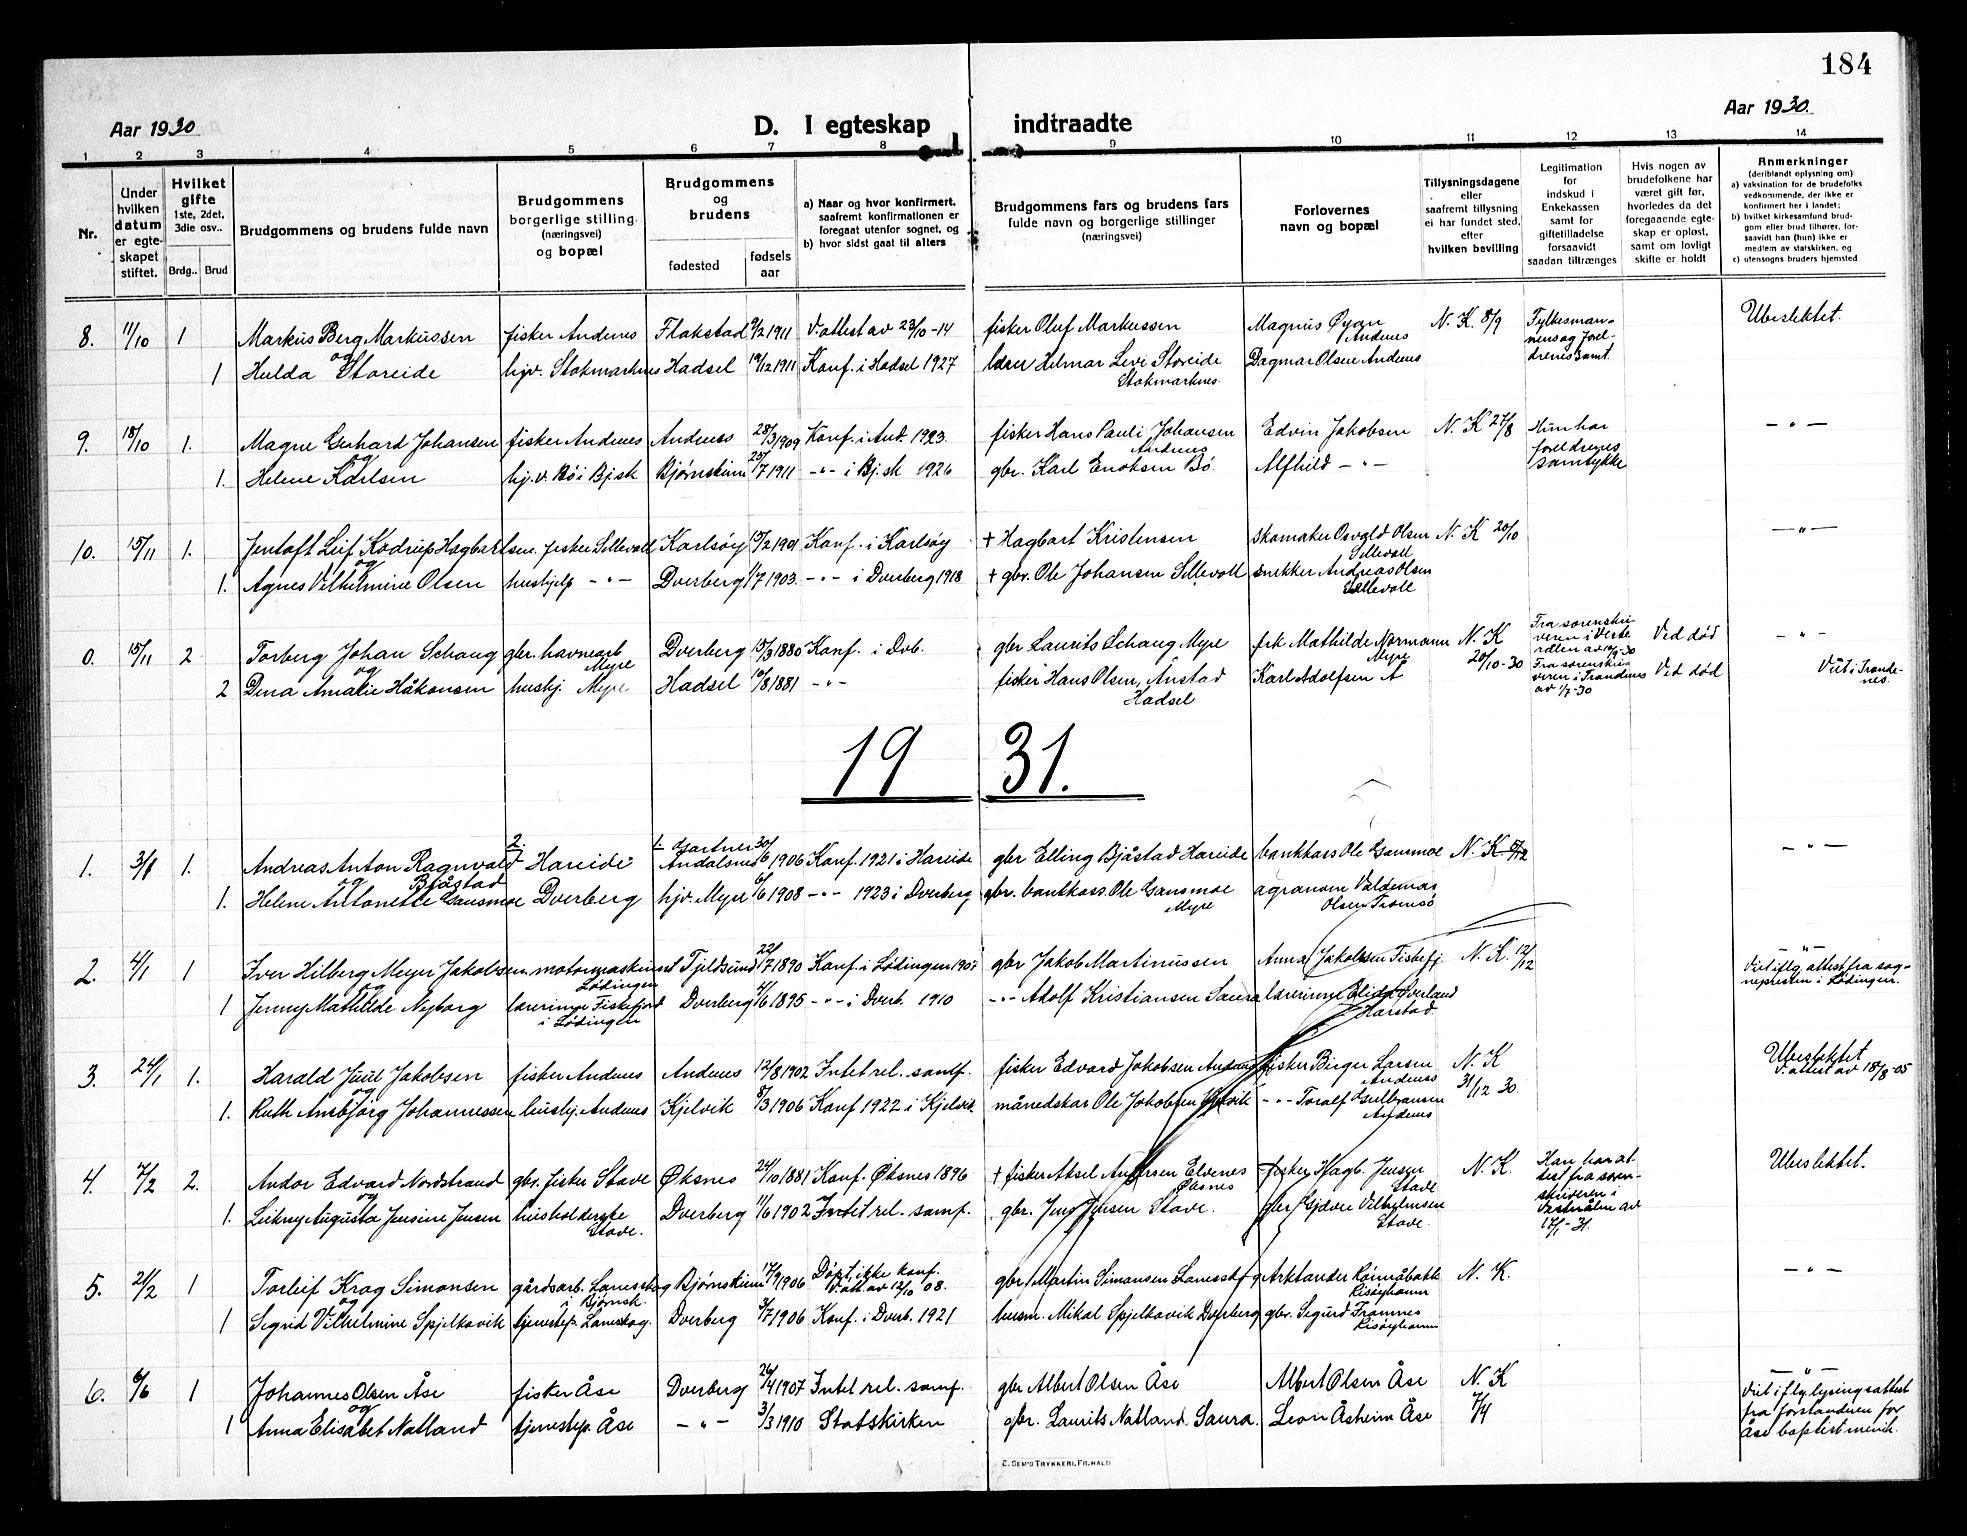 184
Aar 1930
D. I egteskap indtraadte
Aar 1930.
1 2 3 4 5 6 7 8 9 10 11 12 13 14
Nr.
Under hvilken datum er egte-skapet stiftet.
Hvilket gifte 1ste, 2det, 3die osv..
Brdg.. Brud
Brudgommens og brudens fulde navn
Brudgommens borgerlige stilling (næringsvei) og bopæl
Brudgommens og brudens
fødested
fødsels aar
a) Naar og hvor konfirmert. saafremt konfirmationen er foregaat utenfor sognet, og
b) hvor sidst gaat til alters
Brudgommens fars og brudens fars fulde navn og borgerlige stillinger (næringsvei)
Forlovernes navn og bopæl
Tillysningsdagene eller saafremt tillysning ei har fundet sted, efter hvilken bevilling
Legitimation for indskud i Enkekassen samt for giftetilladelse forsaavidt saadan tiltrænges
Hvis nogen av brudefolkene har været gift før, hvorledes da det foregaaende egte-skap er opløst, samt om lovligt skifte er holdt
Anmerkninger (deriblandt oplysning om)
a) vaksination for de brudefolks vedkommende, der ikke er konfirmert her i landet;
b) hvilket kirkesamfund brud-gom eller brud tilhører, for-saavidt han (hun) ikke er medlem av statskirken, og
c) utensogns bruders hjemsted
8. 11/10 1 Markus Berg Markussen fisker Andenes Flakstad 9/2 1911 V. attest av 23/10-14 fisker Oluf Markussen Magnus Øyan Andenes N. K. 8/9 Fylkesman-nens og forel-drenes samt. Ubeslektet.
og
1 Hulda Storeide hjv. Stokmarknes Hadsel 19/12 1911 Konf. i Hadsel 1927 lærer Helmar Levi Storeide Stokmarknes. Dagmar Olsen Andenes
9. 18/10 1. Magne Gerhard Johansen fisker Andenes Andenes 28/3 1909 Konf. i And. 1923. fisker Hans Pauli Johansen Andenes Edvin Jakobsen N. K 27/8 Hun har foreldrenes samtykke — " —
og
1. Helene Karlsen hj. v. Bø i Bj.sk Bjørnskinn 25/7 1911 -"- i Bj.sk 1926 gbr. Karl Enoksen Bø. Alfhild — " —
10. 15/11 1. Jentoft Leif Kodrup Hagbartsen. fisker Sellevoll Karlsøy 15/2 1901 Konf. i Karlsøy + Hagbart Kristensen skomaker Osvald Olsen Sellevoll N. K 20/10 — " —
og
1. Agnes Vilhelmine Olsen hushjelp — " — Dverberg 1/7 1903. -"- i Dverberg 1918 + gbr. Ole Johansen Sellevoll snekker Andreas Olsen Sellevoll
0. 15/11 2 Torberg Johan Schaug gbr. havnearb Myre Dverberg 15/3 1880 Konf. i Dvb. gbr Laurits Schaug Myre frk Mathilde Normann Myre N. K 20/10-30 Fra sorenskri-veren i Veste-rålen av Ved død — " —
og
2 Dena Amalie Håkonsen hushj. Myre Hadsel 10/8 1881 -"- fisker Hans Olsen, Ånstad Hadsel Karl Adolfsen A Fra sorenskri-veren i Trondenes av 1/7-30 Ved død Viet i Tronde-nes.
19 31.
1. 3/1 1. Andreas Anton Ragnvald Bjåstad 2. Hareide 1. Gartner Åndalsnes 30/6 1906 Konf. 1921 i Hareide gbr Elling Bjåstad Hareide bankkass Ole Gansmoe N. K. — " —
og
1. Helene Antonette Gansmoe Dverberg hjv. Myre 6/6 1908 -"- 1923 i Dverberg gbr. bankkass. Ole Gansmoe Myre agronom Valdemar Olsen Tromsø
2. 4/1 1 Iver Hilberg Meyer Jakobsen motormaskinist Lødingen Tjeldsund 22/7 1890 Konf. i Lødingen 1907 gbr Jakob Martinussen Anna Jakobsen Fiskefj. N. K. 12/12 — " — Viet iflg. attest fra sog-nepresten i Lødingen.
og
1 Jenny Mathilde Nyborg lærerinne Fiskefjord i Lødingen Dverberg 4/6 1895 -"- i Dverb. 1910 -"- Adolf Kristiansen Saura lærerinne Elida Overland Harstad.
3. 24/1 1. Harald Juul Jakobsen fisker Andenes Andenes 12/8 1902 Intet rel. samf. fisker Edvard Jakobsen Andenes fisker Birger Larsen Andenes N. K 31/12 30. Ubeslektet V. attest av 18/8-05
og
1. Ruth Ansbjörg Johannessen hushj. Andenes Kjelvik 8/3 1906 Konf 1922 i Kjelvik. månedskar Ole Jakobsen Kjelvik -"- Toralf Gulbransen Andenes
4. 7/2 2. Andor Edvard Nordstrand gbr. fisker Stave Øksnes 24/10 1881 Konf. Øksnes 1896 + fisker Aksel Andersen Elvenes Øksnes fisker Hagb. Jensen Stave N. K. Han har at-test fra soren-skriveren i Vesterålen av 17/1-31. Ubeslektet.
og
1. Leikny Augusta Jensine Jensen husholderske Stave. Dverberg 11/6 1902 Intet rel. samf. gbr. Jens Jensen Stave. gbr Gjæver Vilhelmsen Stave.
5. 21/2 1 Torleif Krog Simonsen gårdsarb. Lanesskog i Bjørnsk. Bjørnskinn 17/9 1906 Døpt, ikke konf. V. att. av 12/10 08. gbr. Martin Simonsen Lanesskog Arktander Rönnåbakk Risöyhamn N. K. — " —
og
1 Sigrid Vilhelmine Spjelkavik tjenestep. Laneskog. Dverberg 3/7 1906 Konf. i Dverb. 1921 husm. Mikal Spjelkavik Dverberg gbr. Sigurd Framnes Risøyhamn
6. 6/6 1 Johannes Olsen Åse fisker Åse Dverberg 26/4 1907 Intet rel. samf. gbr Albert Olsen Åse Albert Olsen Åse N. K 7/4 — " — Viet iflg lysingsattest fra forstanderen for Åse baptistmenih.
og
1 Anna Elisabet Natland tjenestep. Åse — " — 3/3 1910 Statskirken gbr. Laurits Natland. Saura. Leon Åsheim Åse
E. SEM'S TRYKKERI, FR.HALD